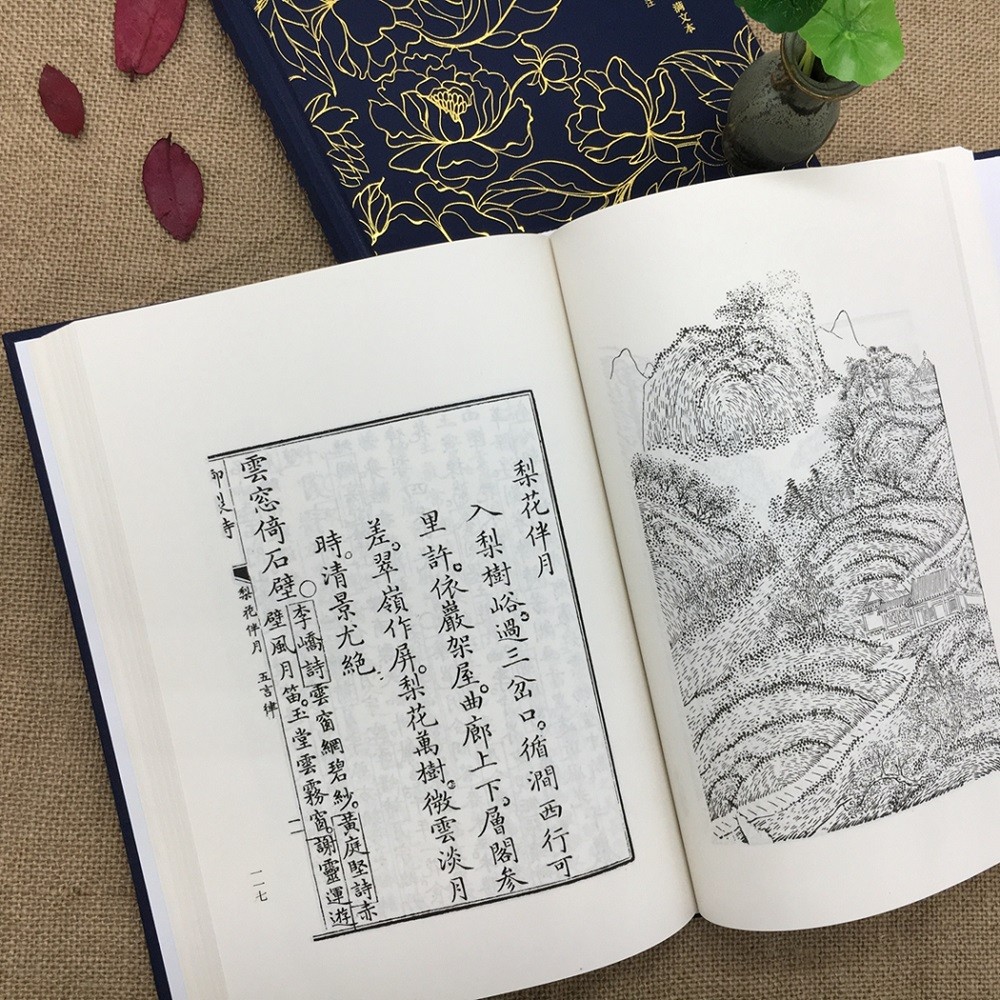 滿文本
梨花伴月
入梨樹峪。過三岔口。循澗西行可
里許。依巖架屋。曲廊上下。層閣參
差。翠嶺作屏。梨花萬樹。微雲淡月
時。清景尤絶
雲窓倚石壁
○李嶠詩雲窗網碧紗。黃庭堅詩赤
壁風月笛。玉堂雲霧窗。謝靈運遊
梨花伴月 五言律
一一七